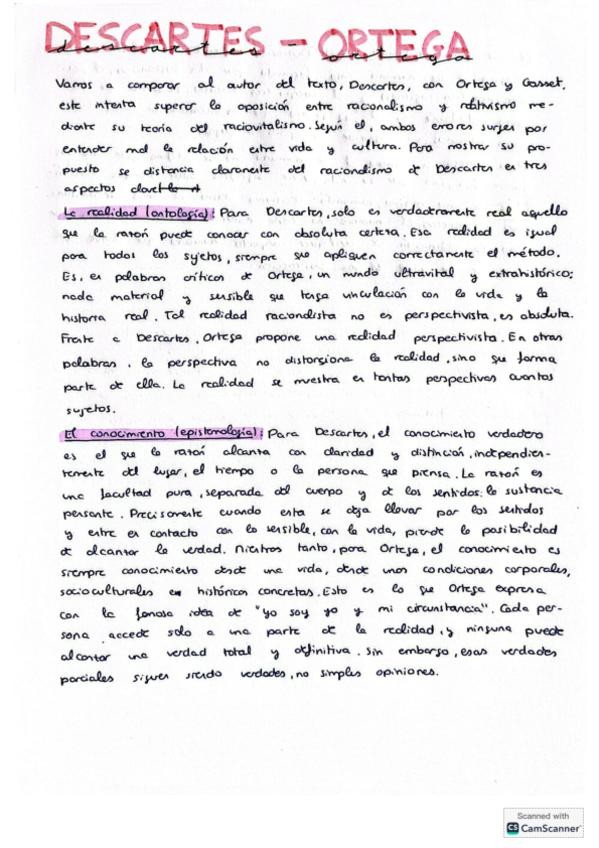 DESCARTES - ORTEGA
descartes ortega
Vamos a comparar al autor del texto, Descartes, con Ortega y Gasset,
este intenta superar la oposición entre racionalismo y relativismo me-
diante su teoría del raciovitalismo. Según el, ambos errores surjes por
entender mal la relación entre vida y cultura. Para mostrar su pro-
puesto se distancia claramente del racionalismo de Descartes en tres
aspectos clave
La realidad (ontología): Para Descartes, solo es verdaderamente real aquello
que la razón puede conocer con absoluta certeza. Esa realidad es igual
para todos los sujetos, siempre que apliquen correctamente el método.
Es, en palabras críticas de Ortega, un mundo ultravital y extrahistórico;
nada material y sensible que tenga vinculación con la vida y la
historia real. Tal realidad racionalista no es perspectivista, es absoluta.
Frente a Descartes, Ortega propone una realidad perspectivista. En otras
palabras, la perspectiva no distorsiona la realidad, sino que forma
parte de ella. La realidad se muestra en tantas perspectivas cuantos
sujetos.
El conocimiento (epistemología): Para Descartes, el conocimiento verdadero
es el que la razón alcanza con claridad y distinción, independien-
temente del lugar, el tiempo o la persona que piensa. La razón es
una facultad pura, separada del cuerpo y de los sentidos: la sustancia
pensante. Precisamente cuando esta se deja llevar por los sentidos
y entra en contacto con lo sensible, con la vida, pierde la posibilidad
de alcanzar la verdad. Mientras tanto, para Ortega, el conocimiento es
siempre conocimiento desde una vida, desde unas condiciones corporales,
socioculturales e históricas concretas. Esto es lo que Ortega expresa
con la famosa idea de "yo soy yo y mi circunstancia". Cada per-
sona accede solo a una parte de la realidad, y ninguna puede
alcanzar una verdad total y definitiva. Sin embargo, esas verdades
parciales siguen siendo verdades, no simples opiniones.
Scanned with
CS CamScanner